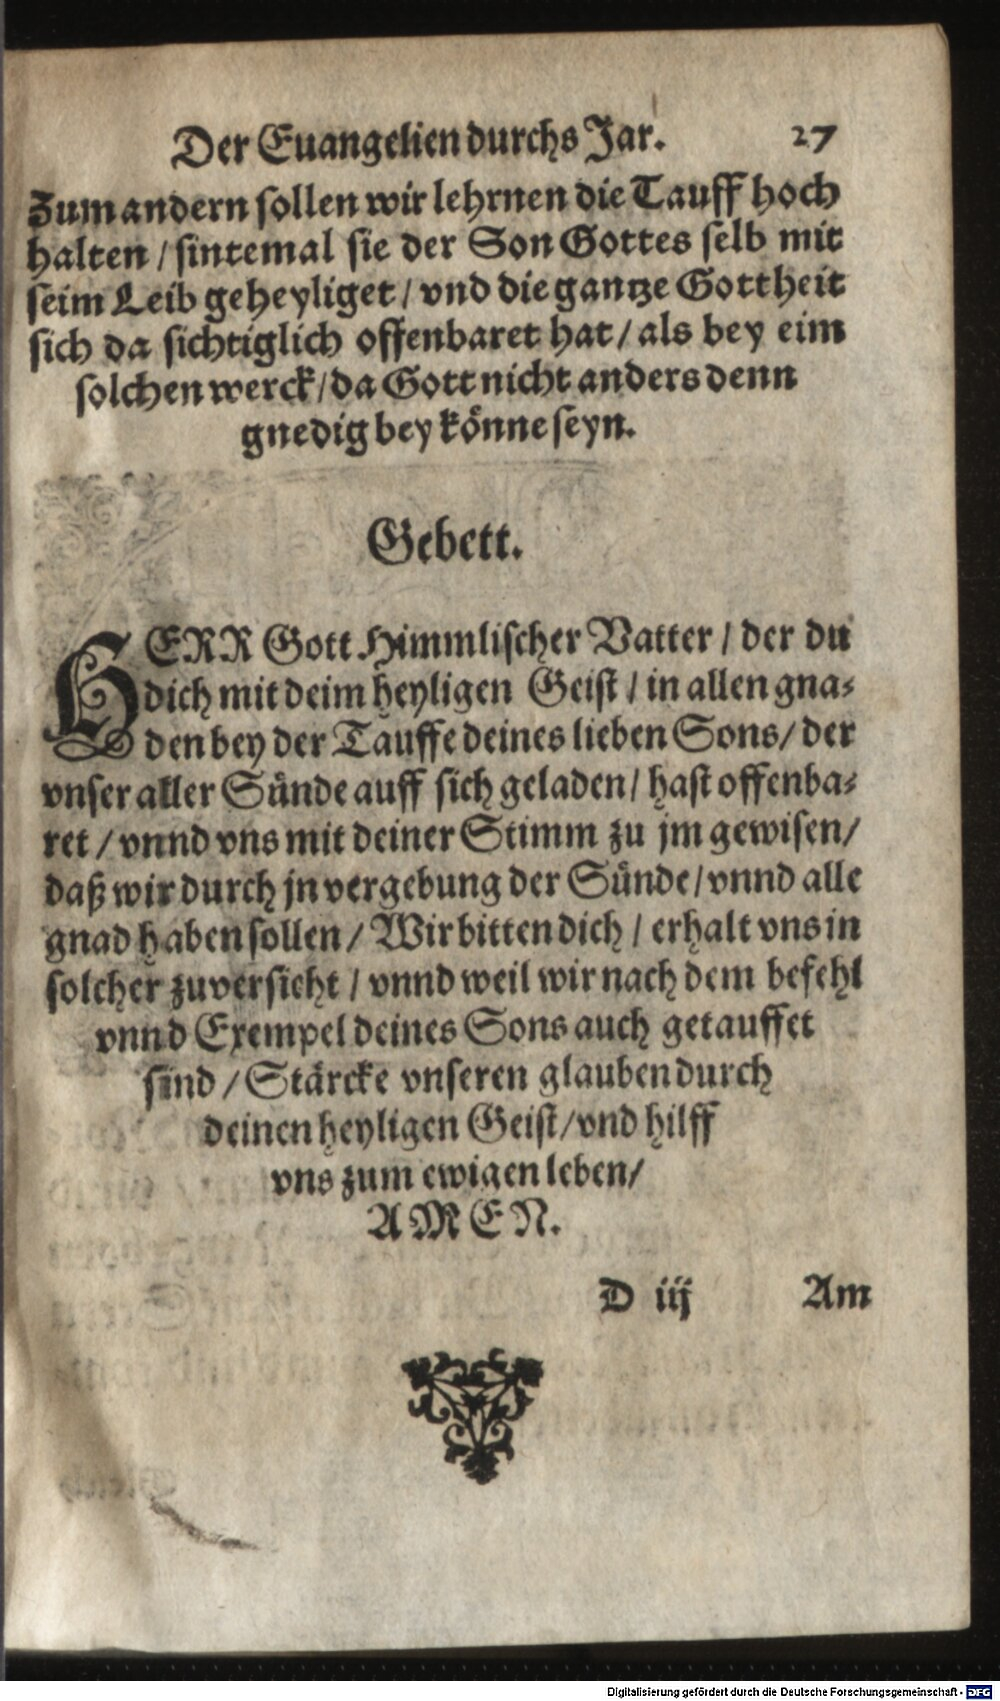 Der Euangelien durchs Jar. 27
Zum andern sollen wir lehrnen die Tauff hoch
halten / sintemal sie der Son Gottes selb mit
seim Leib geheyliget / vnd die gantze Gottheit
sich da sichtiglich offenbaret hat / als bey eim
solchen werck / da Gott nicht anders denn
gnedig bey könne seyn.
Gebett.
HERR Gott Himmlischer Vatter / der du
dich mit deim heyligen Geist / in allen gna-
den bey der Tauffe deines lieben Sons / der
vnser aller Sünde auff sich geladen / hast offenba-
ret / vnnd vns mit deiner Stimm zu jm gewisen /
daß wir durch jn vergebung der Sünde / vnnd alle
gnad haben sollen / Wir bitten dich / erhalt vns in
solcher zuversicht / vnnd weil wir nach dem befehl
vnnd Exempel deines Sons auch getauffet
sind / Stärcke vnseren glauben durch
deinen heyligen Geist / vnd hilff
vns zum ewigen leben /
AMEN.
D iij Am
Digitalisierung gefördert durch die Deutsche Forschungsgemeinschaft - DFG